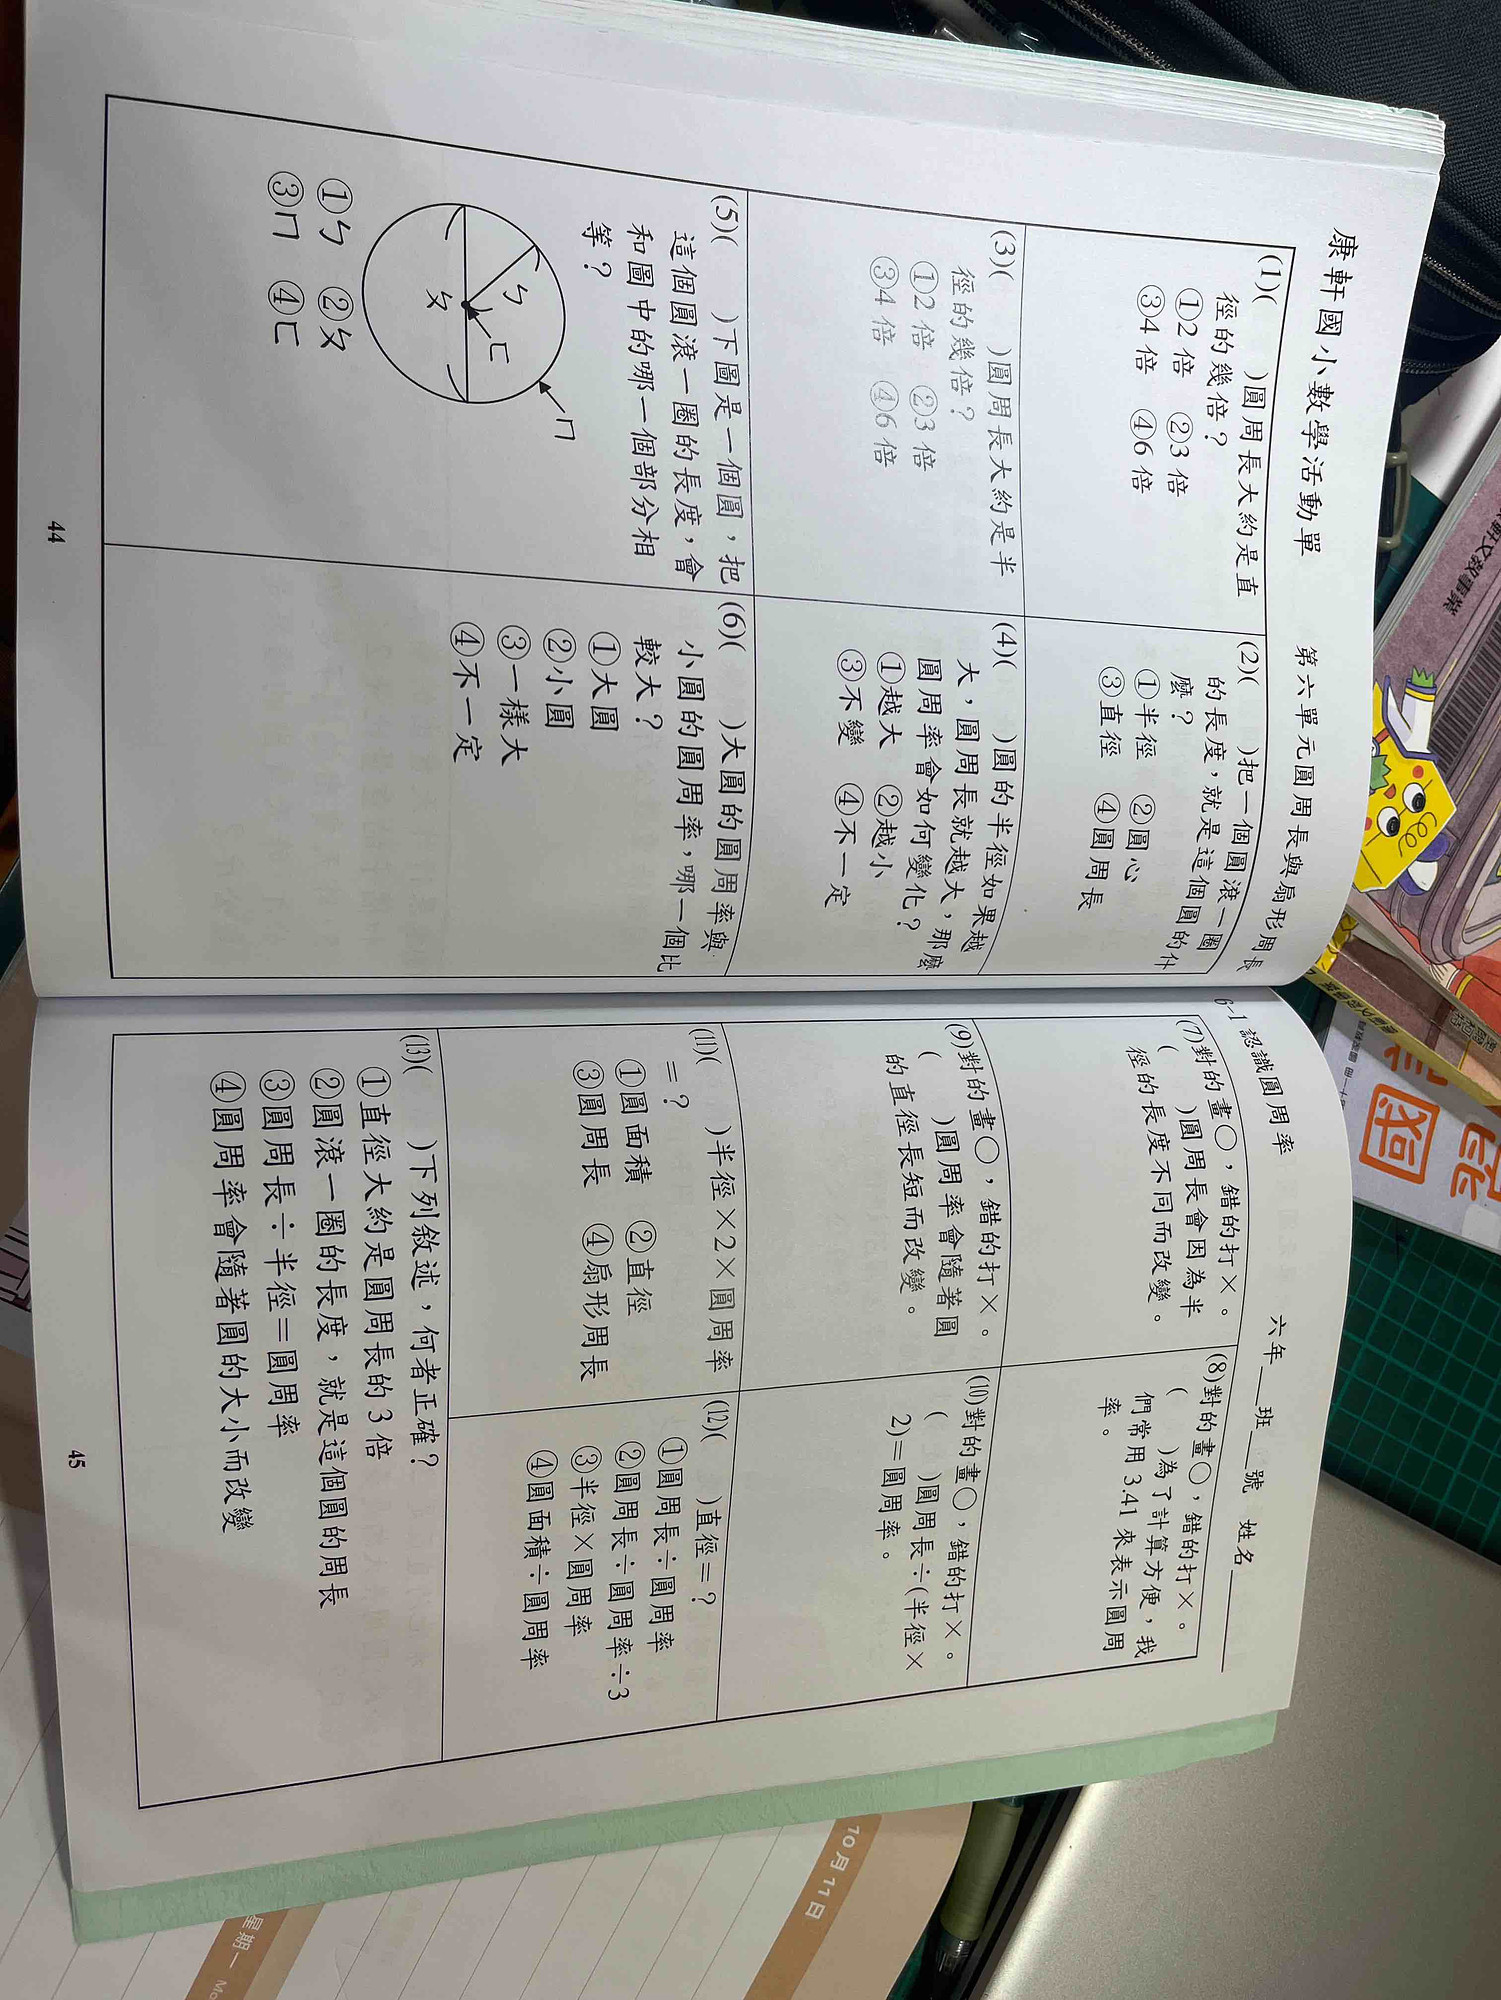 康軒國小數學活動單
第六單元圓周長與扇形周長
(1)( )圓周長大約是直
徑的幾倍？
①2倍 ②3倍
③4倍 ④6倍
(2)( )把一個圓滾一圈
的長度，就是這個圓的什
麼？
①半徑 ②圓心
③直徑 ④圓周長
(3)( )圓周長大約是半
徑的幾倍？
①2倍 ②3倍
③4倍 ④6倍
(4)( )圓的半徑如果越
大，圓周長就越大，那麼
圓周率會如何變化？
①越大 ②越小
③不變 ④不一定
(5)( )下圖是一個圓，把
這個圓滾一圈的長度，會
和圖中的哪一個部分相
等？
ㄇ
ㄅ
ㄈ
ㄆ
①ㄅ ②ㄆ
③ㄇ ④ㄈ
(6)( )大圓的圓周率與
小圓的圓周率，哪一個比
較大？
①大圓
②小圓
③一樣大
④不一定
44
6-1 認識圓周率
六年__班__號 姓名______
(7)對的畫○，錯的打×。
( )圓周長會因為半
徑的長度不同而改變。
(8)對的畫○，錯的打×。
( )為了計算方便，我
們常用3.41來表示圓周
率。
(9)對的畫○，錯的打×。
( )圓周率會隨著圓
的直徑長短而改變。
(10)對的畫○，錯的打×。
( )圓周長÷(半徑×
2)=圓周率。
(11)( )半徑×2×圓周率
=？
①圓面積 ②直徑
③圓周長 ④扇形周長
(12)( )直徑=？
①圓周長÷圓周率
②圓周長÷圓周率÷3
③半徑×圓周率
④圓面積÷圓周率
(13)( )下列敘述，何者正確？
①直徑大約是圓周長的3倍
②圓滾一圈的長度，就是這個圓的周長
③圓周長÷半徑=圓周率
④圓周率會隨著圓的大小而改變
45
10月11日
星期一